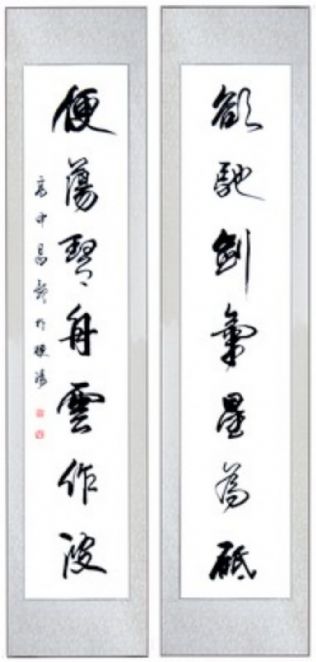 欲馳劍氣星為砥
便蕩琴舟雲作波
高中昌